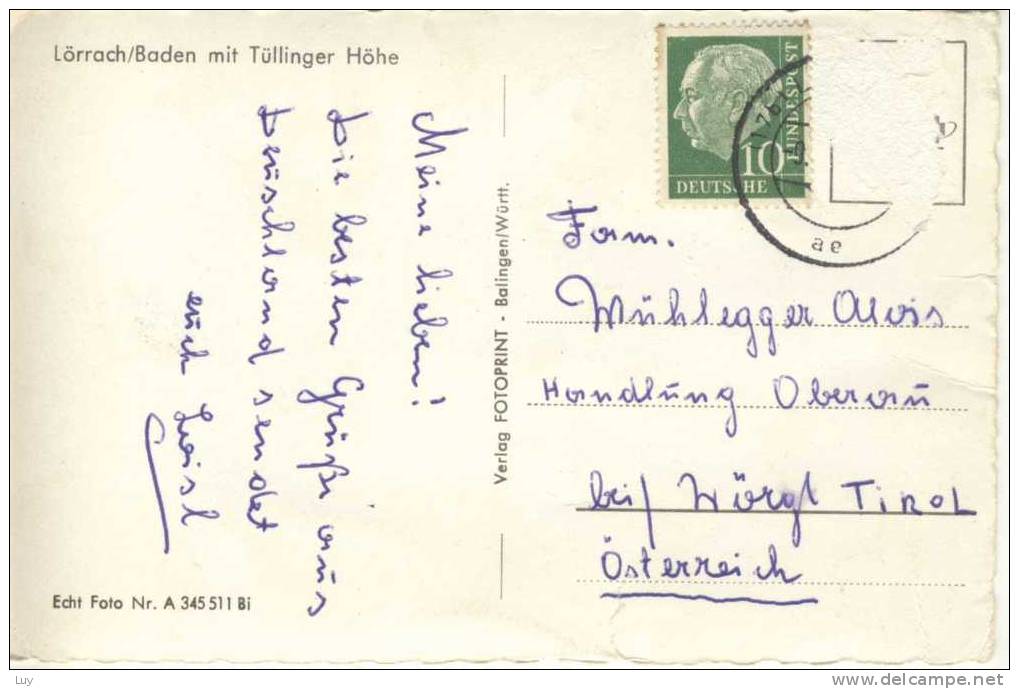 Lörrach/Baden mit Tüllinger Höhe
Meine lieben!
Die besten Grüße aus
Deuschland sendet
euch Loisl
Echt Foto Nr. A 345 511 Bi
Verlag FOTOPRINT - Balingen/Württ.
10
DEUTSCHE
BUNDESPOST
ae
Fam.
Mühlegger Alois
Handlung Oberau
bei/ Wörgl TIROL
Österreich
Luy
www.delcampe.net